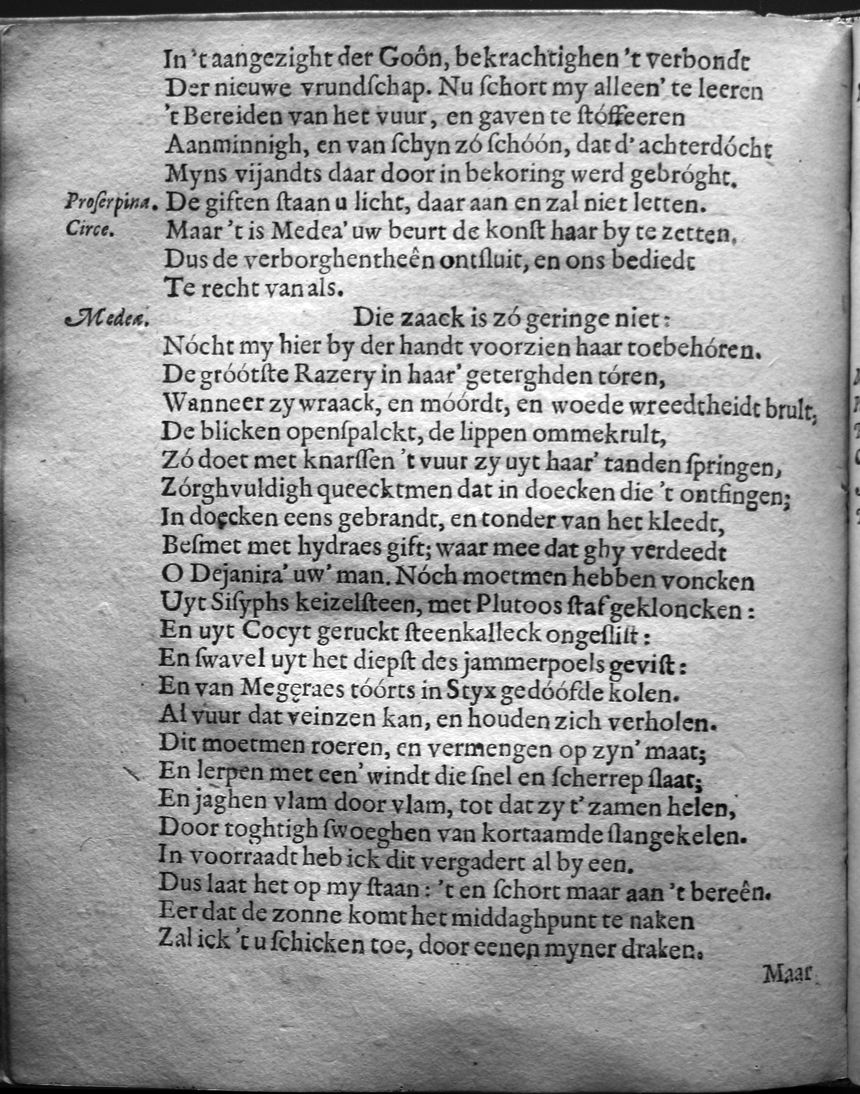 In 't aangezight der Goôn, bekrachtighen 't verbondt
Der nieuwe vrundſchap. Nu ſchort my alleen' te leeren
't Bereiden van het vuur, en gaven te ſtóffeeren
Aanminnigh, en van ſchyn zó ſchóón, dat d' achterdócht
Myns vijandts daar door in bekoring werd gebróght.
Proſerpina. De giften ſtaan u licht, daar aan en zal niet letten.
Circe. Maar 't is Medea' uw beurt de konſt haar by te zetten,
Dus de verborghentheên ontſluit, en ons bediedt
Te recht van als.
Medea. Die zaack is zó geringe niet:
Nócht my hier by der handt voorzien haar toebehóren.
De gróótſte Razery in haar' geterghden tóren,
Wanneer zy wraack, en móórdt, en woede wreedtheidt brult,
De blicken openſpalckt, de lippen ommekrult,
Zó doet met knarſſen 't vuur zy uyt haar' tanden ſpringen,
Zórghvuldigh queecktmen dat in doecken die 't ontfingen;
In doecken eens gebrandt, en tonder van het kleedt,
Beſmet met hydraes gift; waar mee dat ghy verdeedt
O Dejanira' uw' man. Nóch moetmen hebben voncken
Uyt Siſyphs keizelſteen, met Plutoos ſtaf gekloncken:
En uyt Cocyt geruckt ſteenkalleck ongeſliſt:
En ſwavel uyt het diepſt des jammerpoels geviſt:
En van Megęraes tóórts in Styx gedóófde kolen.
Al vuur dat veinzen kan, en houden zich verholen.
Dit moetmen roeren, en vermengen op zyn' maat;
En ſerpen met een' windt die ſnel en ſcherrep ſlaat;
En jaghen vlam door vlam, tot dat zy t' zamen helen,
Door toghtigh ſwoeghen van kortaamde ſlangekelen.
In voorraadt heb ick dit vergadert al by een.
Dus laat het op my ſtaan: 't en ſchort maar aan 't bereên.
Eer dat de zonne komt het middaghpunt te naken
Zal ick 't u ſchicken toe, door eenen myner draken.
Maar